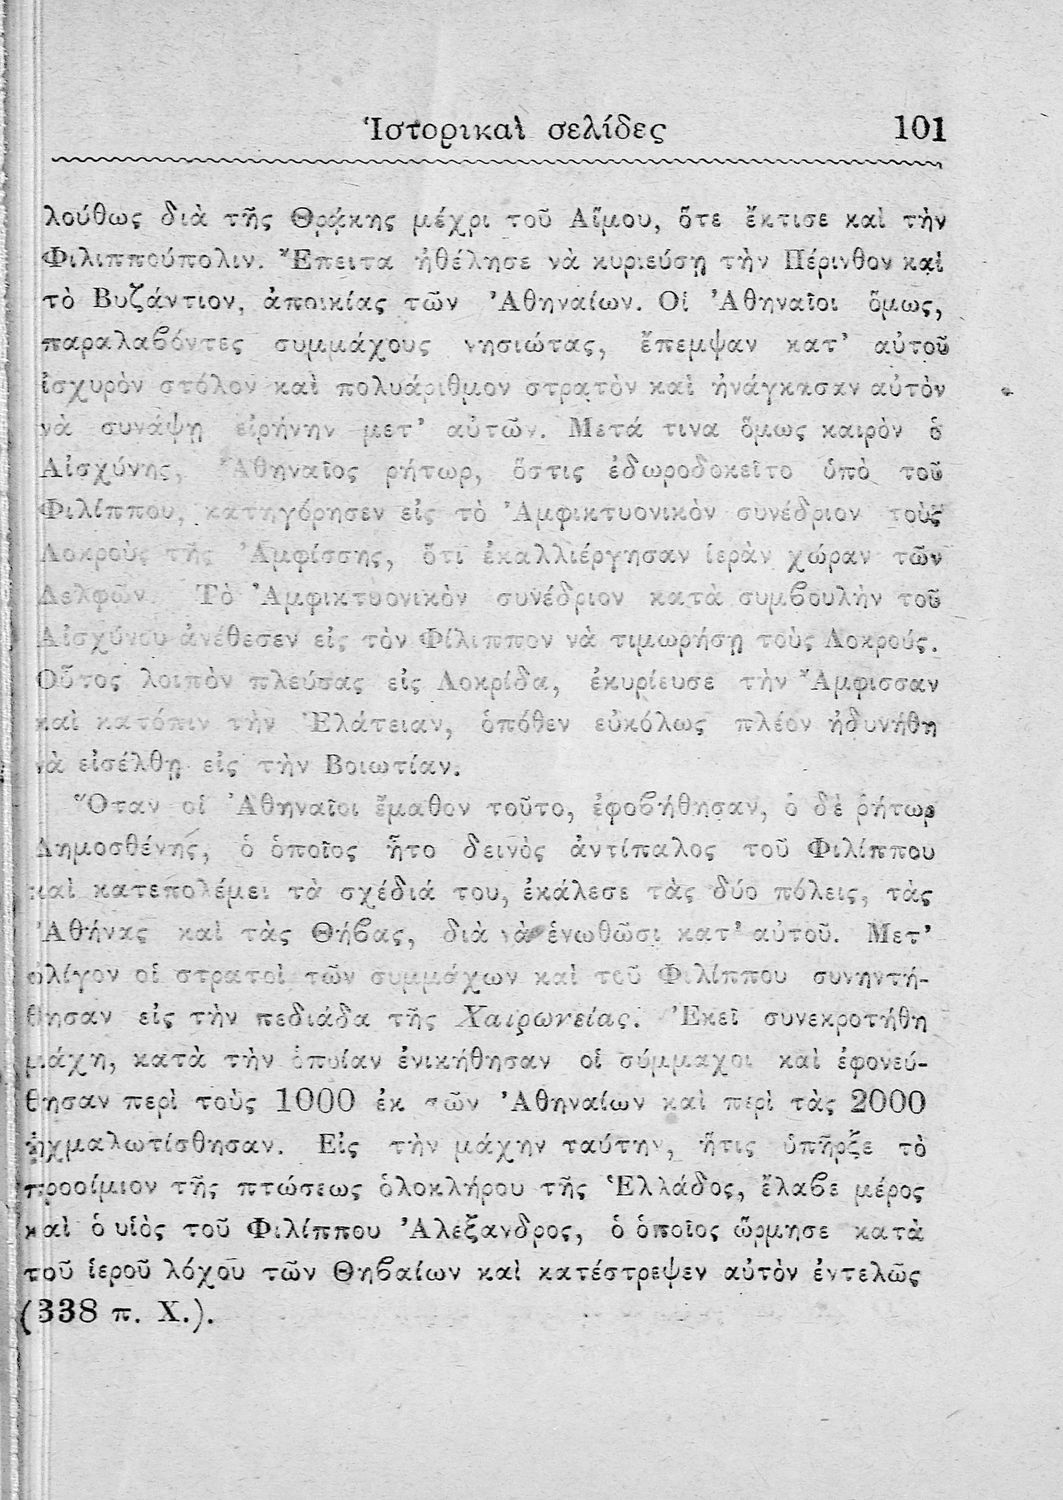 Ἱστορικαὶ σελίδες 101
λούθως διὰ τῆς Θρᾴκης μέχρι τοῦ Αἵμου, ὅτε ἔκτισε καὶ τὴν
Φιλιππούπολιν. Ἔπειτα ἠθέλησε νὰ κυριεύσῃ τὴν Πέρινθον καὶ
τὸ Βυζάντιον, ἀποικίας τῶν Ἀθηναίων. Οἱ Ἀθηναῖοι ὅμως,
παραλαβόντες συμμάχους νησιώτας, ἔπεμψαν κατ' αὐτοῦ
ἰσχυρὸν στόλον καὶ πολυάριθμον στρατὸν καὶ ἠνάγκασαν αὐτὸν
νὰ συνάψῃ εἰρήνην μετ' αὐτῶν. Μετά τινα ὅμως καιρὸν ὁ
Αἰσχύνης, Ἀθηναῖος ρήτωρ, ὅστις ἐδωροδοκεῖτο ὑπὸ τοῦ
Φιλίππου, κατηγόρησεν εἰς τὸ Ἀμφικτυονικὸν συνέδριον τοὺς
Λοκροὺς τῆς Ἀμφίσσης, ὅτι ἐκαλλιέργησαν ἱερὰν χώραν τῶν
Δελφῶν. Τὸ Ἀμφικτυονικὸν συνέδριον κατὰ συμβουλὴν τοῦ
Αἰσχύνου ἀνέθεσεν εἰς τὸν Φίλιππον νὰ τιμωρήσῃ τοὺς Λοκρούς.
Οὗτος λοιπὸν πλεύσας εἰς Λοκρίδα, ἐκυρίευσε τὴν Ἄμφισσαν
καὶ κατόπιν τὴν Ἐλάτειαν, ὁπόθεν εὐκόλως πλέον ἠδυνήθη
νὰ εἰσέλθῃ εἰς τὴν Βοιωτίαν.
Ὅταν οἱ Ἀθηναῖοι ἔμαθον τοῦτο, ἐφοβήθησαν, ὁ δὲ ῥήτωρ
Δημοσθένης, ὁ ὁποῖος ἦτο δεινὸς ἀντίπαλος τοῦ Φιλίππου
καὶ κατεπολέμει τὰ σχέδιά του, ἐκάλεσε τὰς δύο πόλεις, τὰς
Ἀθήνας καὶ τὰς Θήβας, διὰ νὰ ἑνωθῶσι κατ' αὐτοῦ. Μετ'
ὀλίγον οἱ στρατοὶ τῶν συμμάχων καὶ τοῦ Φιλίππου συνηντή-
θησαν εἰς τὴν πεδιάδα τῆς Χαιρωνείας. Ἐκεῖ συνεκροτήθη
μάχη, κατὰ τὴν ὁποίαν ἐνικήθησαν οἱ σύμμαχοι καὶ ἐφονεύ-
θησαν περὶ τοὺς 1000 ἐκ τῶν Ἀθηναίων καὶ περὶ τὰς 2000
ᾐχμαλωτίσθησαν. Εἰς τὴν μάχην ταύτην, ἥτις ὑπῆρξε τὸ
προοίμιον τῆς πτώσεως ὁλοκλήρου τῆς Ἑλλάδος, ἔλαβε μέρος
καὶ ὁ υἱὸς τοῦ Φιλίππου Ἀλέξανδρος, ὁ ὁποῖος ὥρμησε κατὰ
τοῦ ἱεροῦ λόχου τῶν Θηβαίων καὶ κατέστρεψεν αὐτὸν ἐντελῶς
(338 π. Χ.).